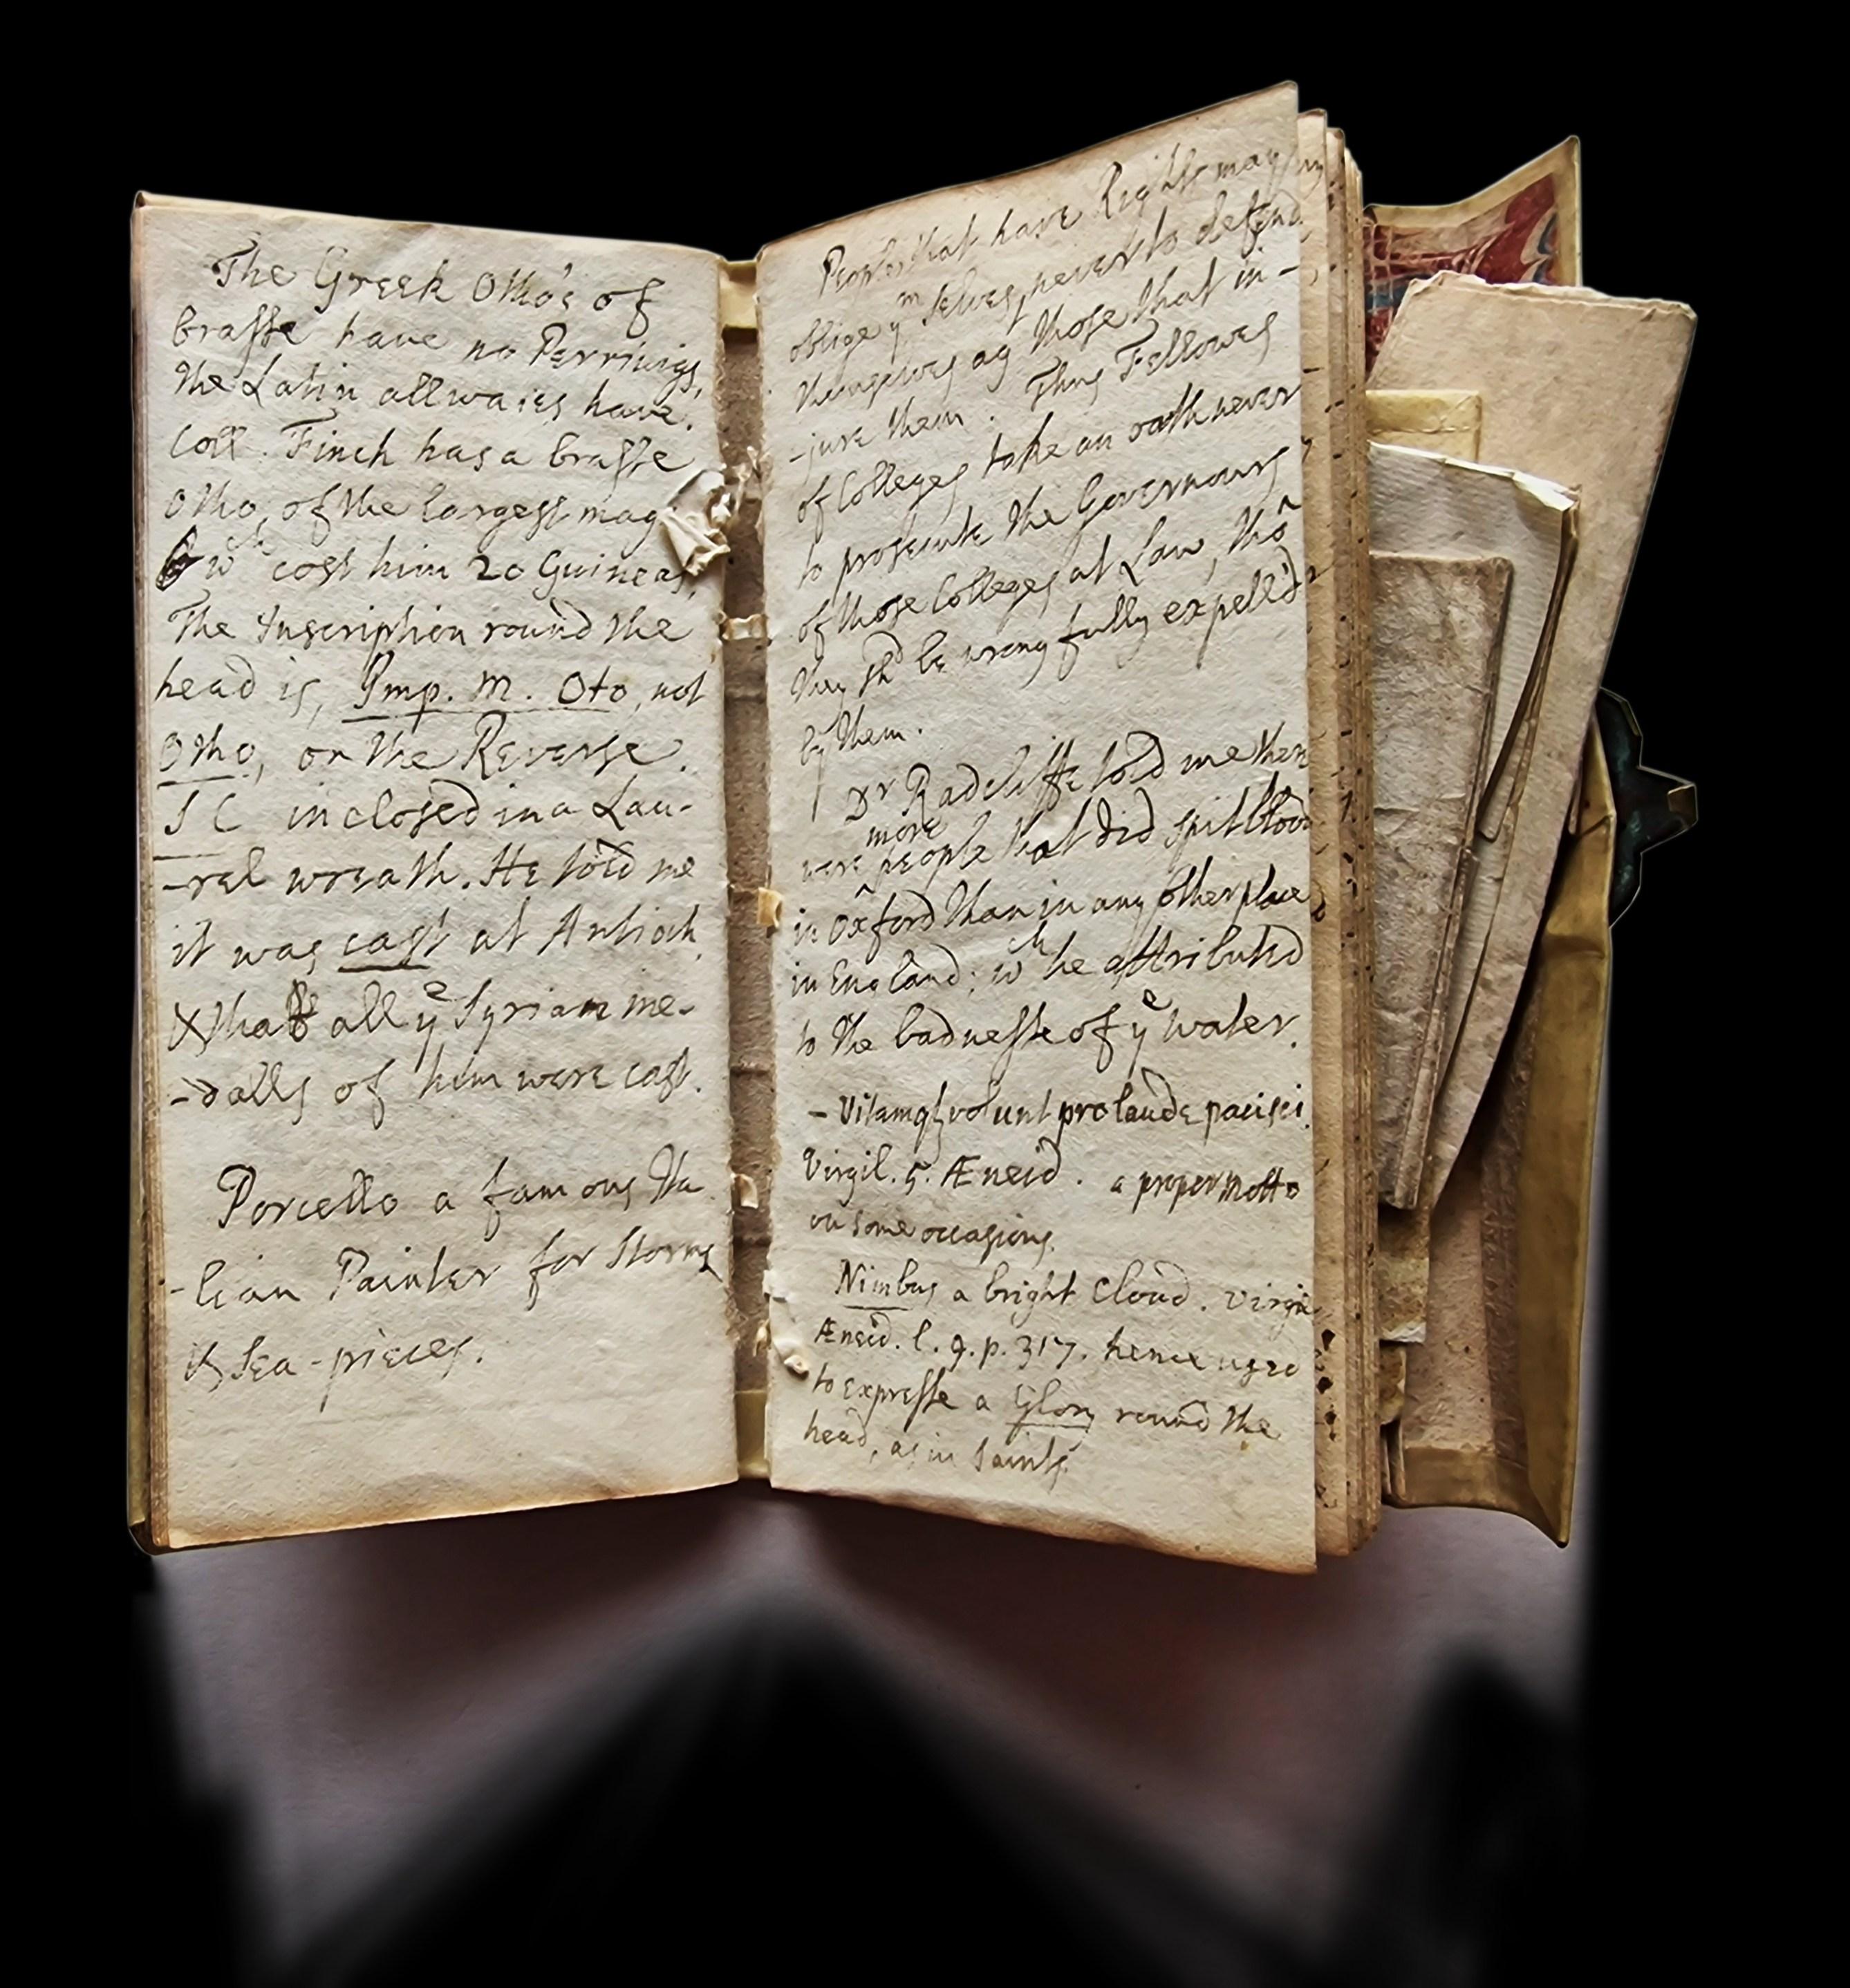 The Greek Otho's of
brasse have no Perriwigs,
the Latin allwaies have.
Coll. Finch has a brasse
Otho, of the largest mag
wch cost him 20 Guineas,
The Inscription round the
head is, Imp. M. Oto, not
Otho, on the Reverse.
S C inclosed in a Lau-
-rel wreath. He told me
it was cast at Antioch
& that all ye Syrian me-
-dalls of him were cast.
Porcello a famous Ita
-lian Painter for Storms
& Sea-pieces.
People that have Rights may
oblige ym selves, never to defend
themselves ag those that in-
-jure them. Thus Fellowes
of Colleges take an oath never
to prosecute the Governours
of those Colleges at Law, thô
they shd be wrongfully expell'd
by them.
Dr Radcliffe told me there
more
were people that did spit blood
in Oxford than in any other place
in England; wch he attributed
to the badnesse of ye water.
- Vitamq; volunt pro laude pacisci.
Virgil. 5. Æneid. a proper Motto
on some occasions.
Nimbus a bright cloud. Virgil
Æneid. l. 9. p. 317. hence used
to expresse a Glory round the
head, as in Saints.